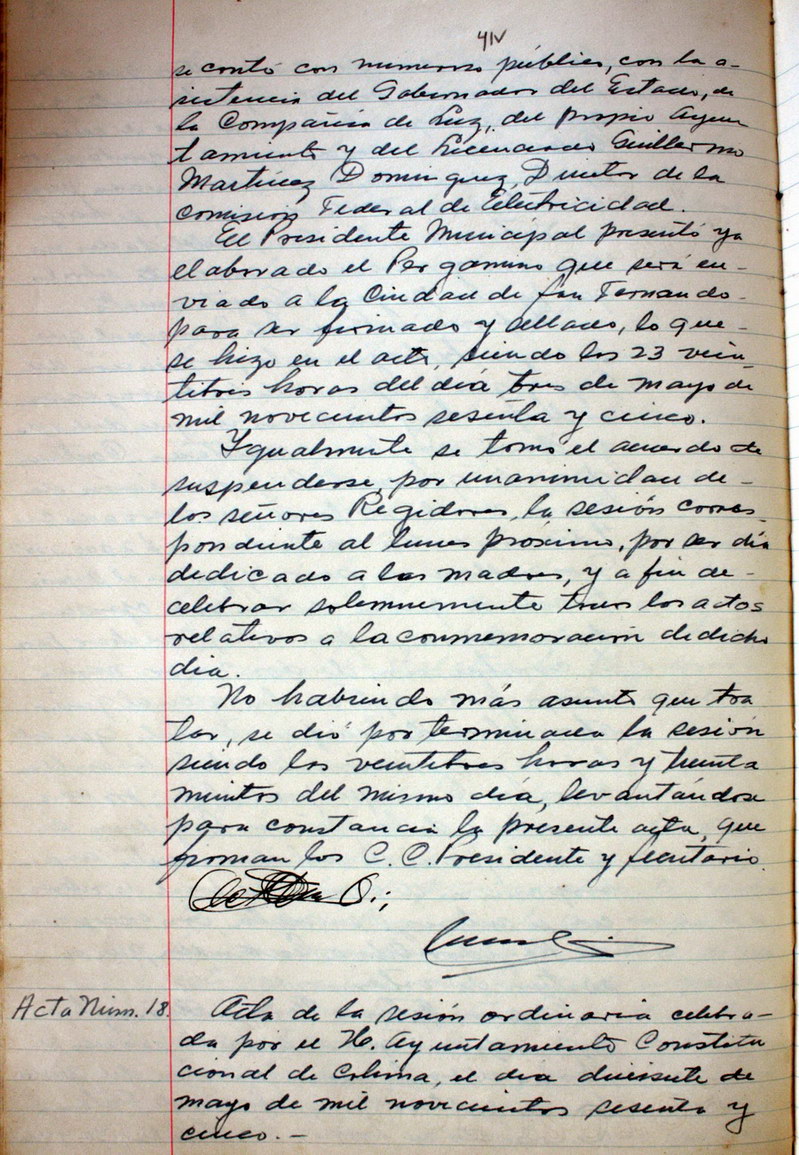 se contó con numeroso público, con la a-
sistencia del Gobernador del Estado, de
la Compañía de Luz, del propio Ayun
tamiento y del Licenciado Guillermo
Martínez Domínguez, Director de la
Comisión Federal de Electricidad.
El Presidente Municipal presentó ya
elaborado el Pergamino que será en-
viado a la Ciudad de San Fernando-
para ser firmado y sellado, lo que-
se hizo en el acto, siendo las 23 vein-
titrés horas del día tres de mayo de
mil novecientos sesenta y cinco.
Igualmente se tomó el acuerdo de
suspenderse, por unanimidad de-
los señores Regidores, la sesión corres-
pondiente al lunes próximo, por ser día
dedicado a las madres, y a fin de-
celebrar solemnemente todos los actos
relativos a la conmemoración de dicho
día.
No habiendo más asunto que tra
tar, se dió por terminada la sesión
siendo las veintitres horas y treinta
minutos del mismo día, levantándose
para constancia la presente acta, que
firman los C. C. Presidente y Secretario.
Acta Núm. 18.
Acta de la sesión ordinaria celebra-
da por el H. Ayuntamiento Constitu
cional de Colima, el día diecisiete de
mayo de mil novecientos sesenta y
cinco.-